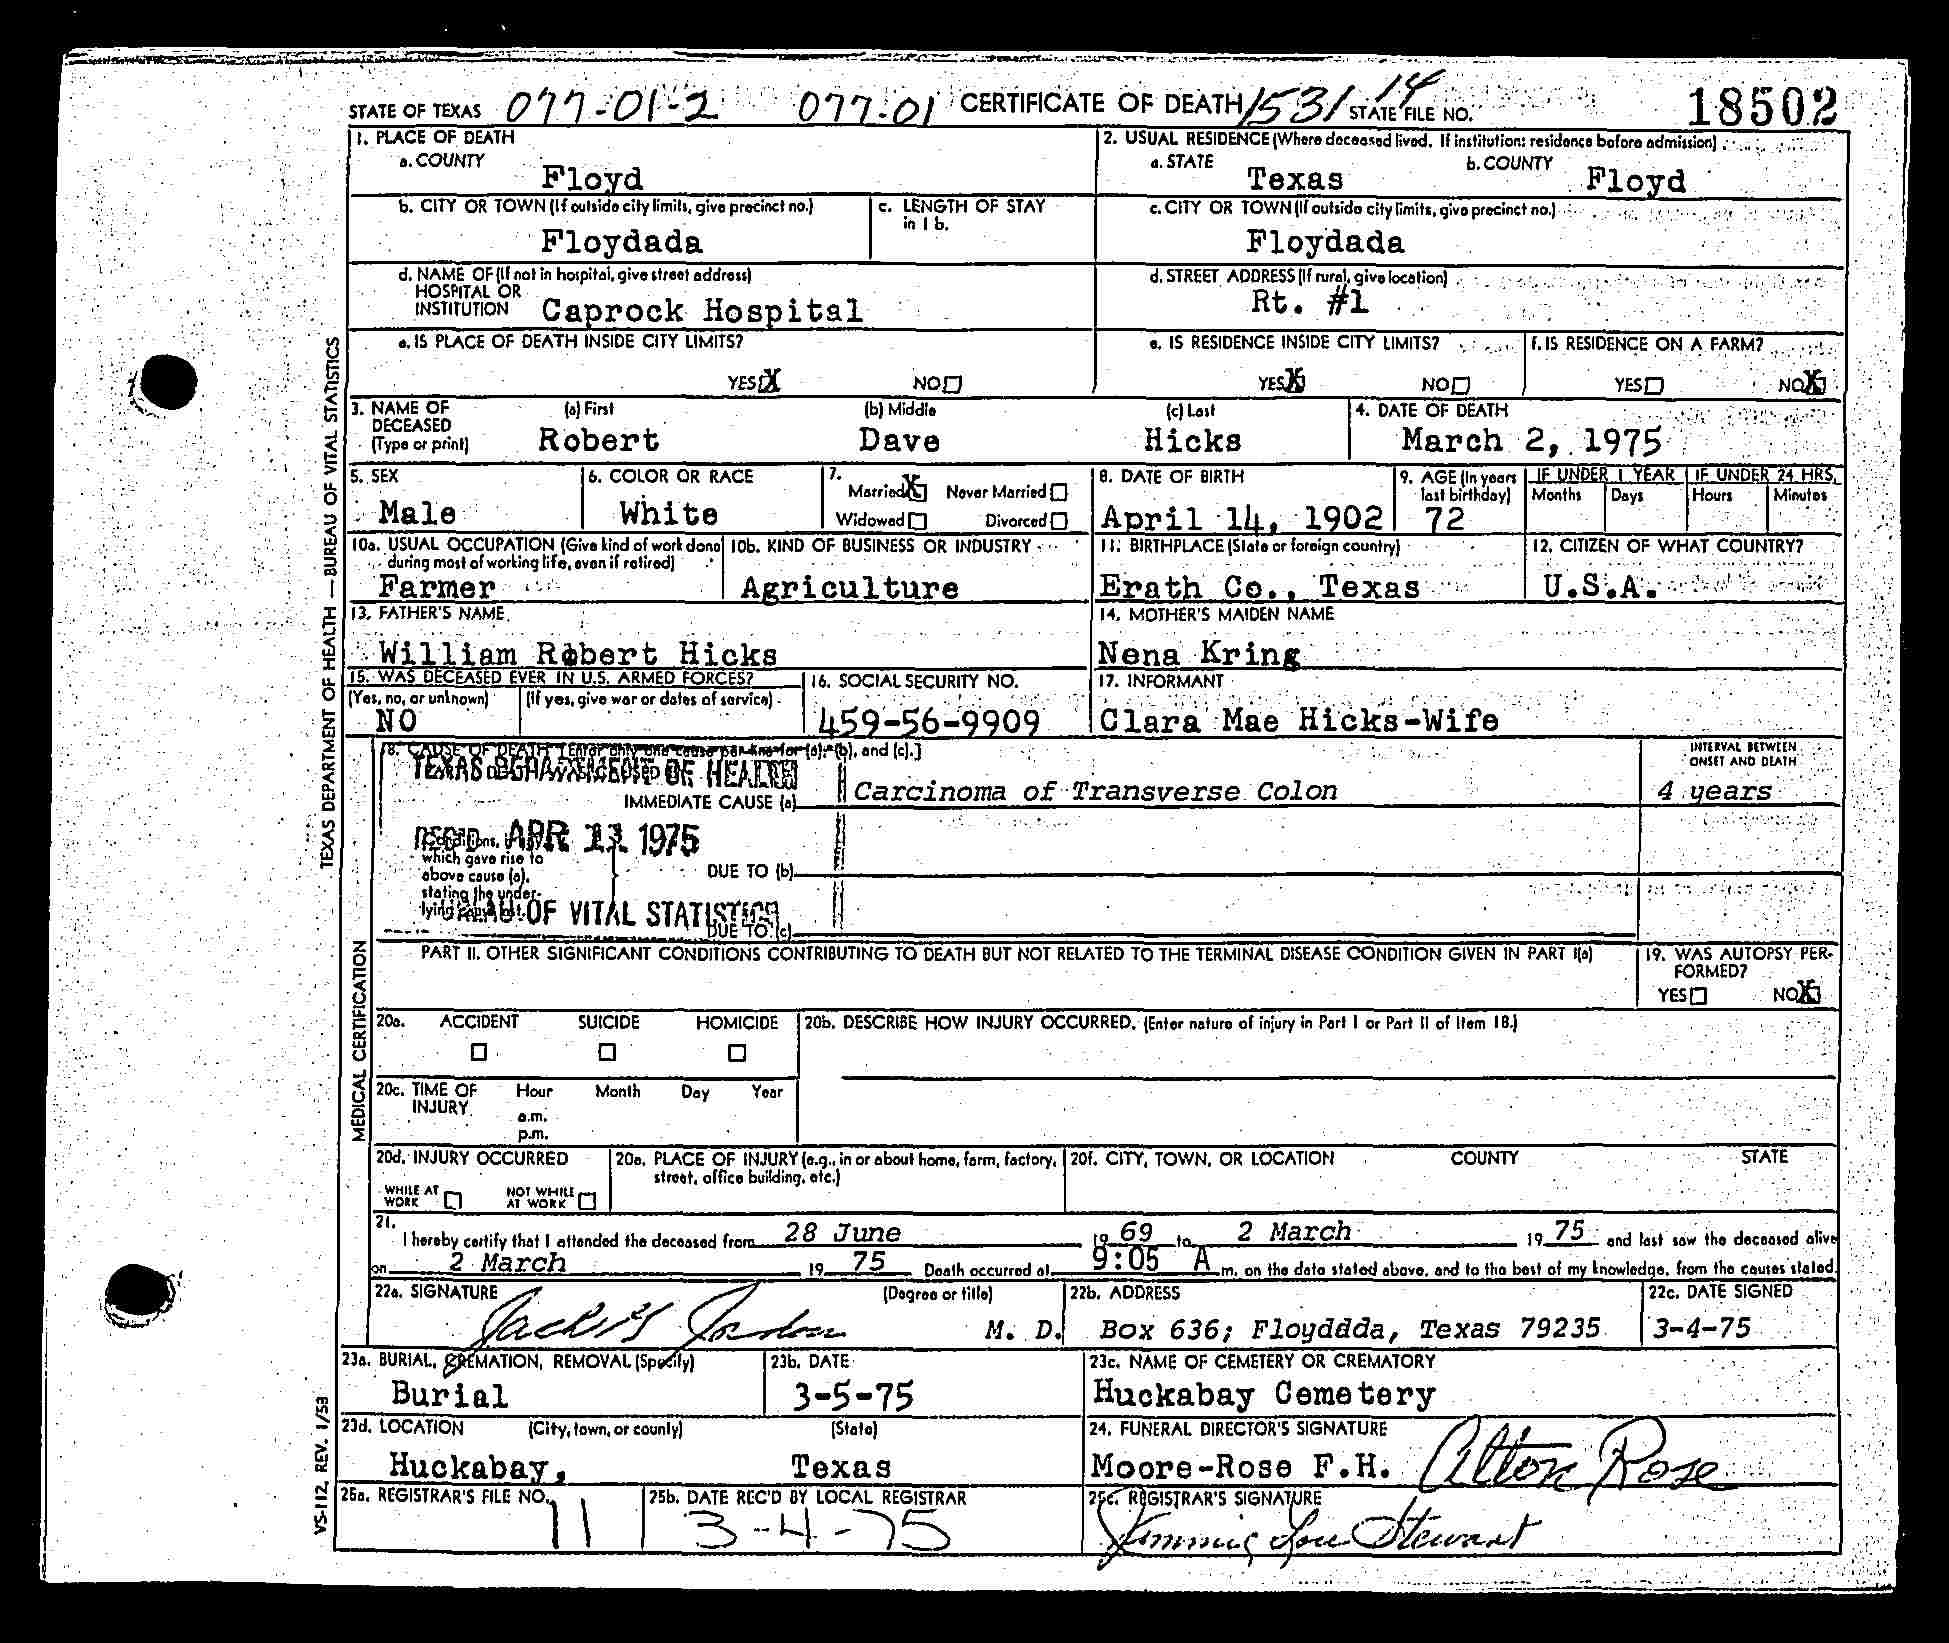 STATE OF TEXAS 077-01-2 077-01 CERTIFICATE OF DEATH 1531 14 STATE FILE NO. 18502
1. PLACE OF DEATH
a. COUNTY
Floyd
2. USUAL RESIDENCE (Where deceased lived. If institution: residence before admission)
a. STATE
Texas
b. COUNTY
Floyd
b. CITY OR TOWN (If outside city limits, give precinct no.)
Floydada
c. LENGTH OF STAY
in 1 b.
c. CITY OR TOWN (If outside city limits, give precinct no.)
Floydada
d. NAME OF (If not in hospital, give street address)
HOSPITAL OR
INSTITUTION Caprock Hospital
d. STREET ADDRESS (If rural, give location)
Rt. #1
e. IS PLACE OF DEATH INSIDE CITY LIMITS?
YES X NO
e. IS RESIDENCE INSIDE CITY LIMITS?
YES X NO
f. IS RESIDENCE ON A FARM?
YES NO X
3. NAME OF
DECEASED
(Type or print)
(a) First
Robert
(b) Middle
Dave
(c) Last
Hicks
4. DATE OF DEATH
March 2, 1975
5. SEX
Male
6. COLOR OR RACE
White
7.
Married X Never Married
Widowed Divorced
8. DATE OF BIRTH
April 14, 1902
9. AGE (In years
last birthday)
72
IF UNDER 1 YEAR
Months Days
IF UNDER 24 HRS.
Hours Minutes
10a. USUAL OCCUPATION (Give kind of work done
during most of working life, even if retired)
Farmer
10b. KIND OF BUSINESS OR INDUSTRY
Agriculture
11. BIRTHPLACE (State or foreign country)
Erath Co., Texas
12. CITIZEN OF WHAT COUNTRY?
U.S.A.
13. FATHER'S NAME
William Robert Hicks
14. MOTHER'S MAIDEN NAME
Nena Kring
15. WAS DECEASED EVER IN U.S. ARMED FORCES?
(Yes, no, or unknown)
NO
(If yes, give war or dates of service)
16. SOCIAL SECURITY NO.
459-56-9909
17. INFORMANT
Clara Mae Hicks-Wife
18. CAUSE OF DEATH [Enter only one cause per line for (a), (b), and (c).]
TEXAS DEPARTMENT OF HEALTH
IMMEDIATE CAUSE (a) Carcinoma of Transverse Colon
INTERVAL BETWEEN
ONSET AND DEATH
4 years
REC'D APR 1975
which gave rise to
above cause (a),
stating the under-
lying
DUE TO (b)
OF VITAL STATISTICS
DUE TO (c)
PART II. OTHER SIGNIFICANT CONDITIONS CONTRIBUTING TO DEATH BUT NOT RELATED TO THE TERMINAL DISEASE CONDITION GIVEN IN PART I(a)
19. WAS AUTOPSY PER-
FORMED?
YES NO X
20a. ACCIDENT SUICIDE HOMICIDE
20b. DESCRIBE HOW INJURY OCCURRED. (Enter nature of injury in Part I or Part II of Item 18.)
20c. TIME OF
INJURY
Hour Month Day Year
a.m.
p.m.
20d. INJURY OCCURRED
WHILE AT
WORK
NOT WHILE
AT WORK
20e. PLACE OF INJURY (e.g., in or about home, farm, factory,
street, office building, etc.)
20f. CITY, TOWN, OR LOCATION COUNTY STATE
21.
I hereby certify that I attended the deceased from 28 June 19 69 to 2 March 19 75 and last saw the deceased alive
on 2 March 19 75 Death occurred at 9:05 A m. on the date stated above, and to the best of my knowledge, from the causes stated.
22a. SIGNATURE (Degree or title)
Jordan M. D.
22b. ADDRESS
Box 636; Floyddda, Texas 79235
22c. DATE SIGNED
3-4-75
23a. BURIAL, CREMATION, REMOVAL (Specify)
Burial
23b. DATE
3-5-75
23c. NAME OF CEMETERY OR CREMATORY
Huckabay Cemetery
23d. LOCATION (City, town, or county) (State)
Huckabay, Texas
24. FUNERAL DIRECTOR'S SIGNATURE
Moore-Rose F.H. Alton Rose
25a. REGISTRAR'S FILE NO.
11
25b. DATE REC'D BY LOCAL REGISTRAR
3-4-75
25c. REGISTRAR'S SIGNATURE
Jimmie Lou Stewart
TEXAS DEPARTMENT OF HEALTH — BUREAU OF VITAL STATISTICS
MEDICAL CERTIFICATION
VS-112, REV. 1/58